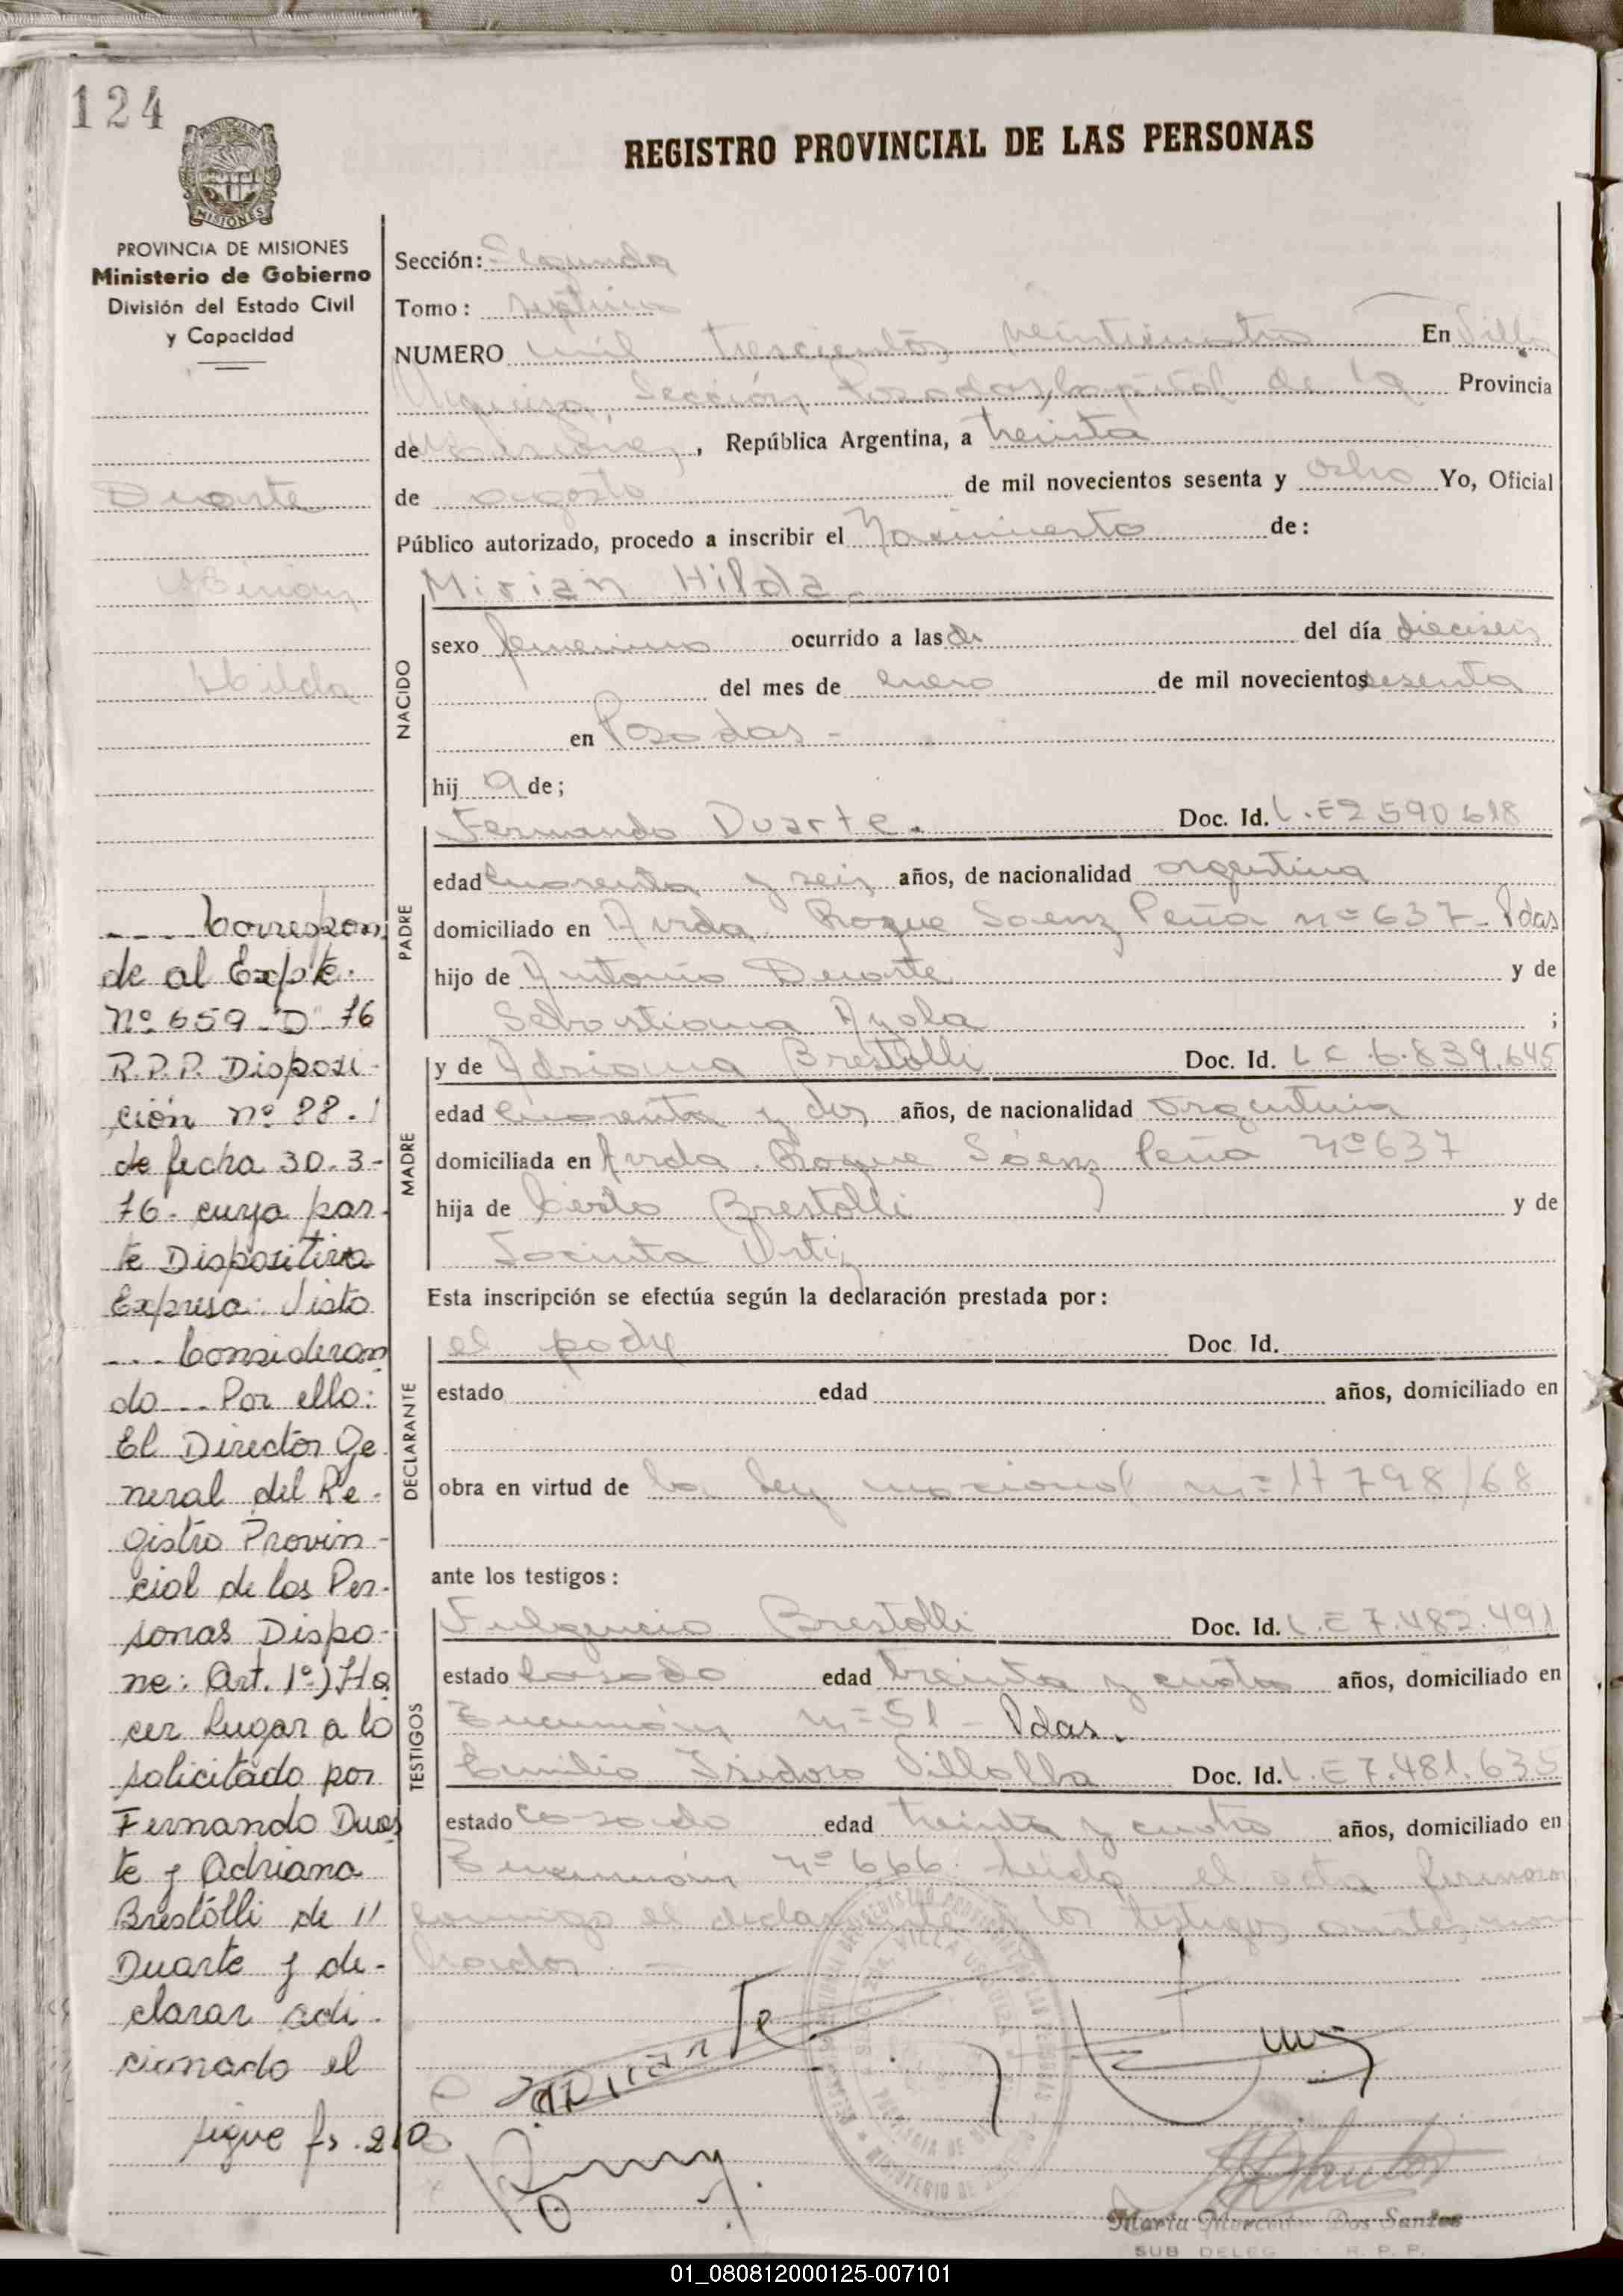 124
REGISTRO PROVINCIAL DE LAS PERSONAS
PROVINCIA DE MISIONES
Ministerio de Gobierno
División del Estado Civil
y Capacidad
Duarte
Mirian
Hilda
Sección: Segunda
Tomo: septimo
NUMERO mil trescientos veinticuatro En Villa
Urquiza, Sección Posadas, Capital de la Provincia
de Misiones, República Argentina, a treinta
de agosto de mil novecientos sesenta y ocho Yo, Oficial
Público autorizado, procedo a inscribir el Nacimiento de:
Mirian Hilda.
NACIDO
sexo femenino ocurrido a las del día dieciseis
del mes de enero de mil novecientos sesenta
en Posadas -
hij a de;
PADRE
Fernando Duarte. Doc. Id. L.E 2 590 618
edad cuarenta y seis años, de nacionalidad argentina
domiciliado en Avda. Roque Saenz Peña nº 637 - Pdas
hijo de Antonio Duarte y de
Sebastiana Ayala ;
MADRE
y de Adriana Brestolli Doc. Id. L C 6.839.645
edad cuarenta y dos años, de nacionalidad argentina
domiciliada en Avda. Roque Sáenz Peña nº 637
hija de Brestolli y de
Jacinta Ortiz
Esta inscripción se efectúa según la declaración prestada por:
DECLARANTE
el padre Doc. Id.
estado edad años, domiciliado en
obra en virtud de la ley nacional nº 17 798/68
ante los testigos:
TESTIGOS
Fulgencio Brestolli Doc. Id. L.E 7.482.491
estado casado edad treinta y cuatro años, domiciliado en
Tucumán nº 51 - Pdas.
Emilio Isidoro Villalba Doc. Id. L.E 7.481.635
estado casado edad treinta y cuatro años, domiciliado en
Tucumán nº 666. Leida el acta firmaron
conmigo el declarante y los testigos antes nom
brados. -
Duarte
Maria Mercedes Dos Santos
SUB DELEG. R. P. P.
.... Correspon
de al Expte.
Nº 659-D-76
R.P.P. Disposi-
ción nº 88.
de fecha 30-3-
76- cuya par-
te Dispositiva
Expresa: Visto
... Consideran
do ... Por ello:
El Director Ge
neral del Re-
gistro Provin-
cial de las Per-
sonas Dispo-
ne: Art. 1º) Ha
cer Lugar a lo
solicitado por
Fernando Duar
te y Adriana
Brestólli de "
Duarte y de-
clarar adi-
cionado el
sigue fs. 210
01_080812000125-007101